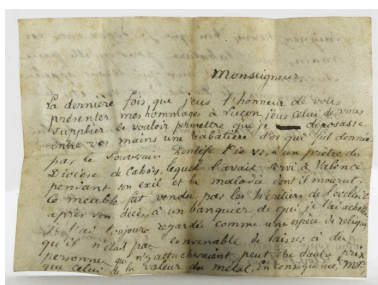 Monseigneur,
La dernière fois que j'eus l'honneur de vous
présenter mes hommages à Luçon, j'ous celui de vous
supplier de vouloir permettre que je deposasse
entre vos mains une tabatière d'or qui fut donnée
par le Souverain Pontife Pie VI, à un prêtre du
Diocèse de Cahors, lequel l'avait servi à Valence
pendant son exil et la maladie dont il mourut.
Ce meuble fut vendu par les héritiers de l'ecclés.
après son décès, à un banquier de qui je l'ai acheté.
Je l'ai toujours regardée comme une espèce de relique
qu'il n'était pas convenable de laisser à des
personnes qui n'y attacheraient peut être d'autre prix
que celui de la valeur du métal. en conséquence,